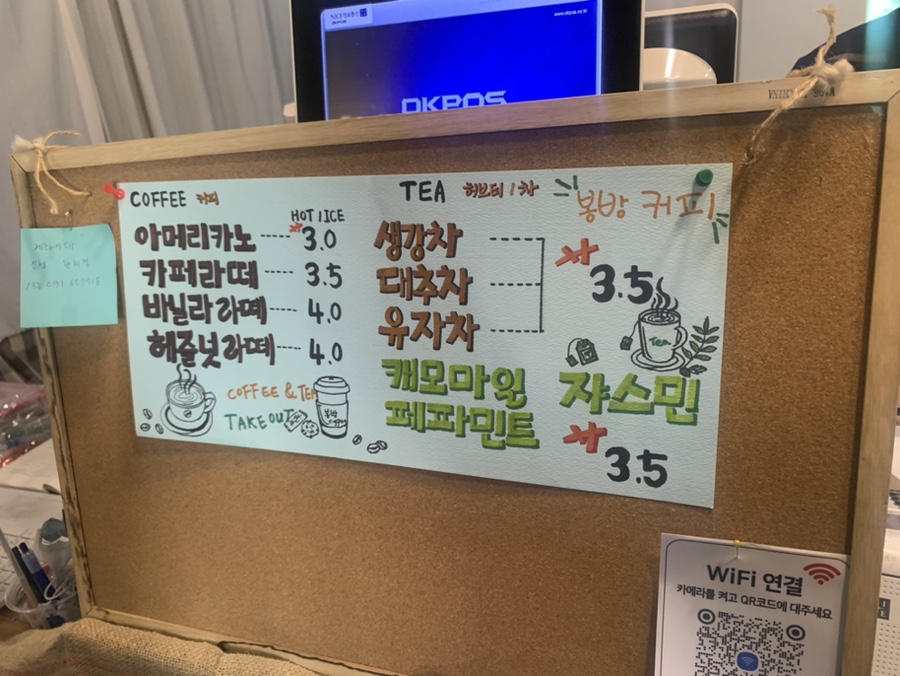 www.okpos.co.kr
OKPOS
COFFEE 커피
HOT / ICE
아메리카노 3.0
카페라떼 3.5
바닐라 라떼 4.0
헤즐넛 라떼 4.0
COFFEE & TEA
TAKE OUT
TEA 허브티 / 차
봉방 커피
생강차
대추차
유자차
3.5
Tea
캐모마일
페파민트
쟈스민
3.5
WiFi 연결
카메라를 켜고 QR코드에 대주세요